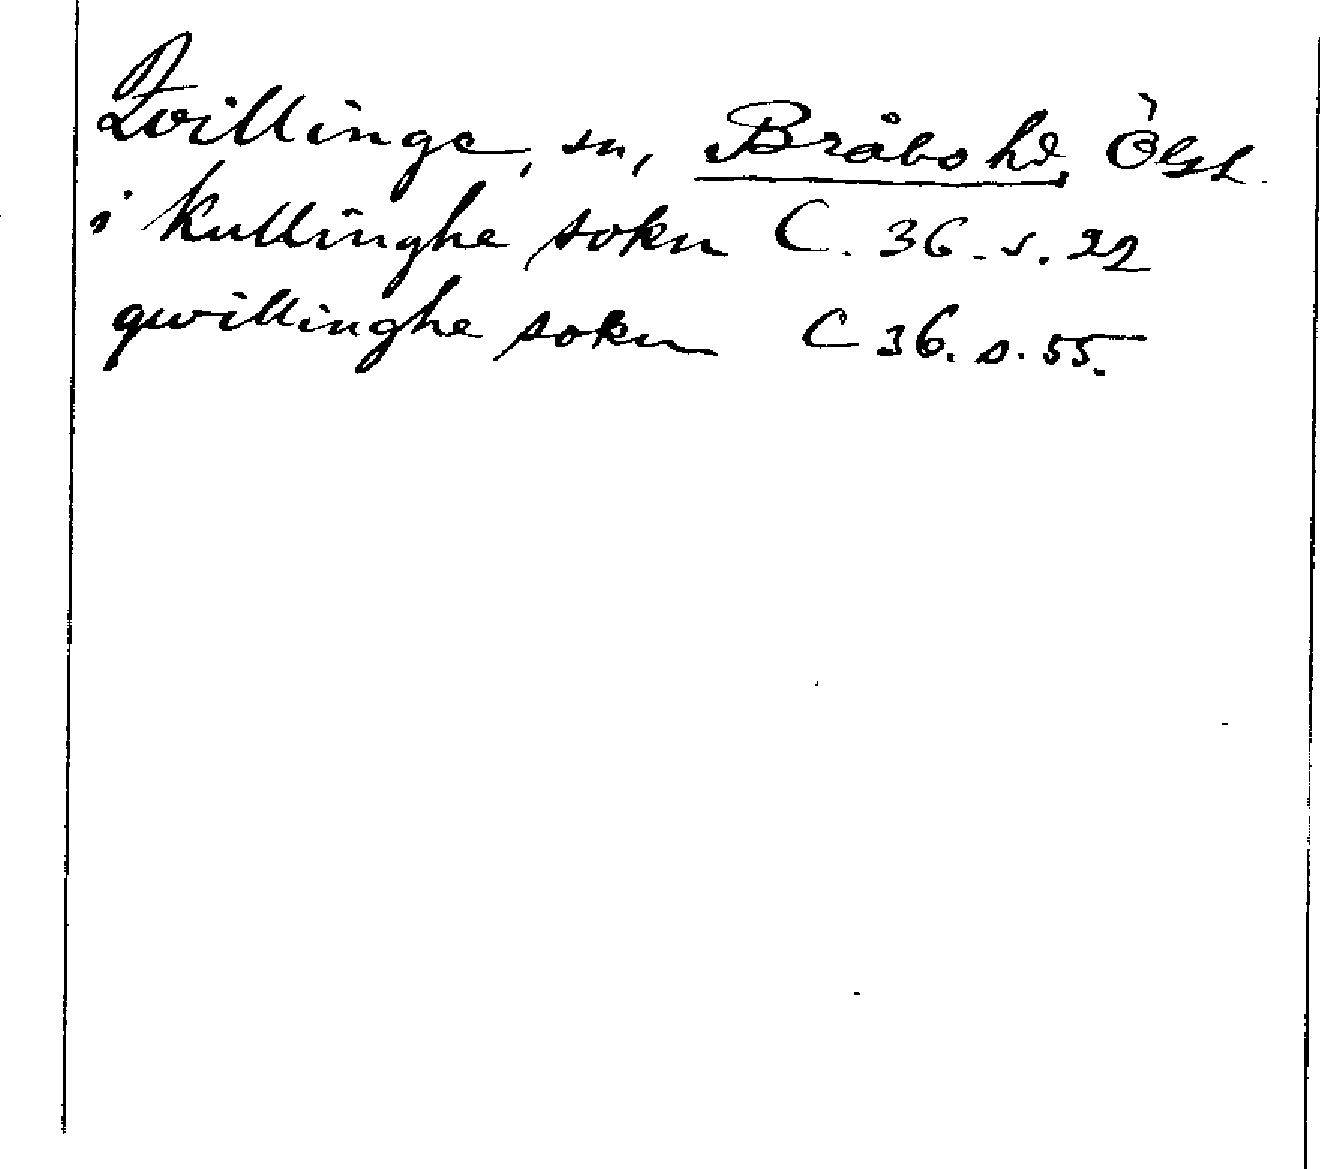 Qvillinge, sn, Bråbo hd, Ögl.
i kullinghe sokn C. 36. s. 22
qwillinghe sokn C 36. s. 55.